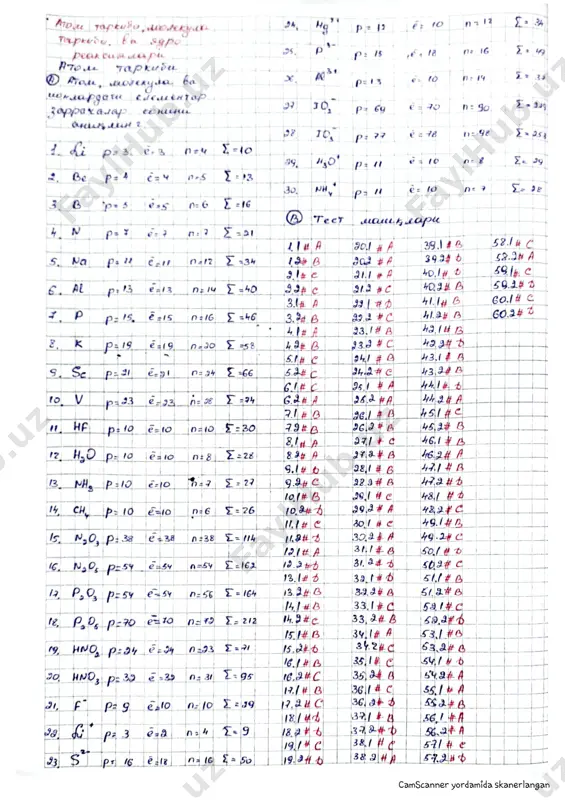 Атом таркиби, молекула
таркиби, ва ядро
реакциялари
Атом таркиби
(A) Атом, молекула ва
ионлардаги элементар
заррачалар сонини
аниқланг:
1. Li p=3 ē=3 n=4 Σ=10
2. Be p=4 ē=4 n=5 Σ=13
3. B p=5 ē=5 n=6 Σ=16
4. N p=7 ē=7 n=7 Σ=21
5. Na p=11 ē=11 n=12 Σ=34
6. Al p=13 ē=13 n=14 Σ=40
7. P p=15 ē=15 n=16 Σ=46
8. K p=19 ē=19 n=20 Σ=58
9. Sc p=21 ē=21 n=24 Σ=66
10. V p=23 ē=23 n=28 Σ=74
11. HF p=10 ē=10 n=10 Σ=30
12. H₂O p=10 ē=10 n=8 Σ=28
13. NH₃ p=10 ē=10 n=7 Σ=27
14. CH₄ p=10 ē=10 n=6 Σ=26
15. N₂O₃ p=38 ē=38 n=38 Σ=114
16. N₂O₅ p=54 ē=54 n=54 Σ=162
17. P₂O₃ p=54 ē=54 n=56 Σ=164
18. P₂O₅ p=70 ē=70 n=72 Σ=212
19. HNO₂ p=24 ē=24 n=23 Σ=71
20. HNO₃ p=32 ē=32 n=31 Σ=95
21. F⁻ p=9 ē=10 n=10 Σ=29
22. Li⁺ p=3 ē=2 n=4 Σ=9
23. S²⁻ p=16 ē=18 n=16 Σ=50
24. Mg²⁺ p=12 ē=10 n=12 Σ=34
25. P³⁻ p=15 ē=18 n=16 Σ=49
Al³⁺ p=13 ē=10 n=14
27. p=69 ē=70 n=90
28 p=77 ē=78 n=98
29. H₃O⁺ p=11 ē=10 n=8 Σ=29
30. NH₄⁺ p=11 ē=10 n=7 Σ=28
(B) Тест машқлари
1.1# A 20.1# A 39.1# B 58.1# C
1.2# B 20.2# A 39.2# D 58.2# A
2.1# C 21.1# A 40.1# D 59.1# C
2.2# C 21.2# C 40.2# B 59.2# D
3.1# A 22.1# D 41.1# B 60.1# C
3.2# B 22.2# C 41.2# B 60.2# D
4.1# A 23.1# B 42.1# B
4.2# B 23.2# C 42.2# D
5.1# C 24.1# B 43.1# B
5.2# C 24.2# C 43.2# A
6.1# C 25.1# A 44.1# D
6.2# A 25.2# A 44.2# A
7.1# B 26.1# B 45.1# C
7.2# B 26.2# B 45.2# B
8.1# A 27.1# C 46.1# B
8.2# A 27.2# B 46.2# A
9.1# D 28.1# B 47.1# B
9.2# C 28.2# B 47.2# D
10.1# B 29.1# C 48.1# D
10.2# D 29.2# A 48.2# C
11.1# C 30.1# C 49.1# B
11.2# D 30.2# A 49.2# C
12.1# A 31.1# B 50.1# D
12.2# D 31.2# D 50.2# C
13.1# D 32.1# D 51.1# B
13.2# B 32.2# B 51.2# B
14.1# B 33.1# C 52.1# C
14.2# C 33.2# B 52.2# D
15.1# B 34.1# A 53.1# B
15.2# D 34.2# C 53.2# B
16.1# B 35.1# C 54.1# D
16.2# C 35.2# B 54.2# A
17.1# B 36.1# C 55.1# A
17.2# C 36.2# D 55.2# B
18.1# D 37.1# B 56.1# A
18.2# D 37.2# D 56.2# A
19.1# C 38.1# C 57.1# C
19.2# D 38.2# A 57.2# D
FaylHub.uz
CamScanner yordamida skanerlangan